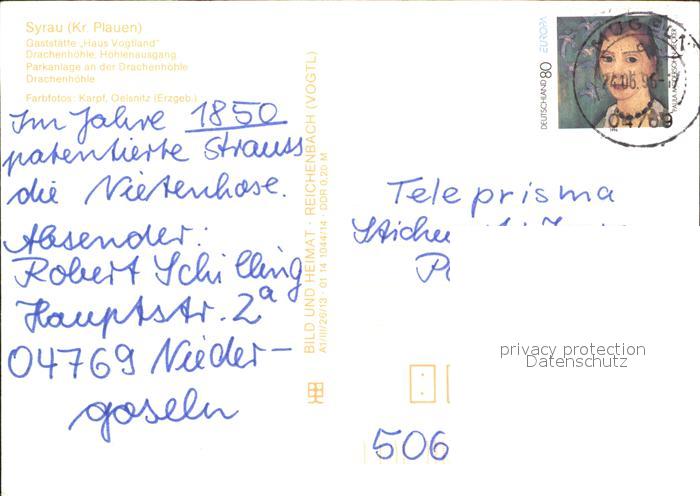 Syrau (Kr. Plauen)
Gaststätte „Haus Vogtland"
Drachenhöhle, Höhlenausgang
Parkanlage an der Drachenhöhle
Drachenhöhle
Farbfotos: Karpf, Oelsnitz (Erzgeb.)
Im Jahre 1850
patentierte Strauss
die Nietenhose.
Absender:
Robert Schilling
Hauptstr. 2a
04769 Nieder-
goseln
BILD UND HEIMAT · REICHENBACH (VOGTL)
A1/III/26/13 · 01 14 1044/14 · DDR 0,20 M
DEUTSCHLAND 80 EUROPA
PAULA MODERSOHN-BECKER
04769
Teleprisma
506
privacy protection
Datenschutz